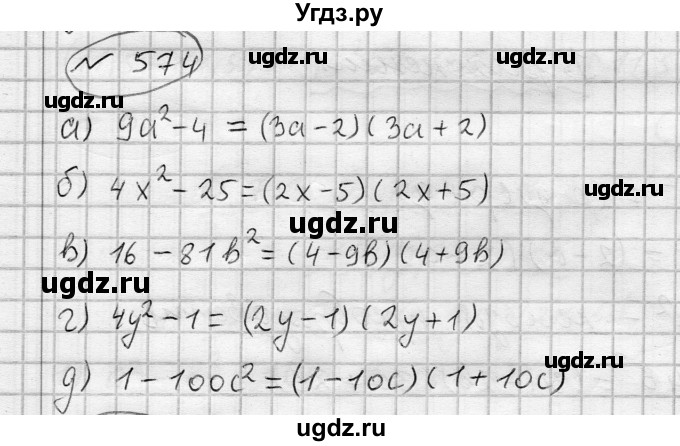 Угдз.ру
№ 574
ugdz.ru ugdz.ru
ugdz.ru
а) 9a² - 4 = (3a - 2)(3a + 2)
б) 4x² - 25 = (2x - 5)(2x + 5)
ugdz.ru
ugdz.ru
в) 16 - 81b² = (4 - 9b)(4 + 9b)
ugdz.ru
г) 4y² - 1 = (2y - 1)(2y + 1)
ugdz.ru
д) 1 - 100c² = (1 - 10c)(1 + 10c)
ugdz.ru